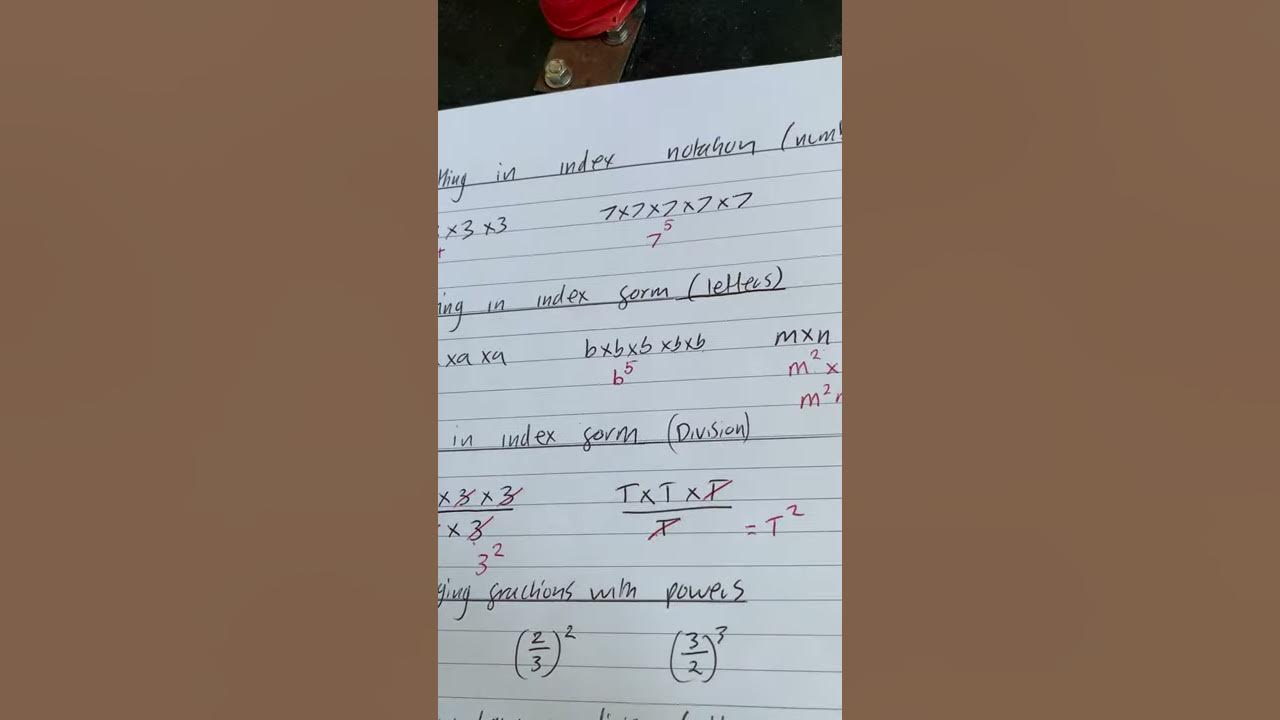 in index notation (num
×3 ×3 7×7×7×7×7
7⁵
in index form (letters)
×a ×a b×b×b×b×b m×n
b⁵ m² ×
m²
in index form (Division)
×3 ×3 T×T×T
×3 T = T²
3²
fractions with powers
(2/3)² (3/2)³